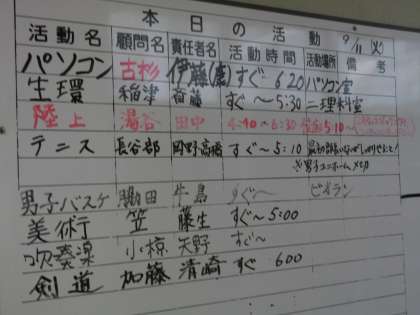 本日の活動 9/11(火)
活動名 顧問名 責任者名 活動時間 活動場所 備考
パソコン 古杉 伊藤(鹿) すぐ 6:20 パソコン室
生環 稲津 斎藤 すぐ〜5:30 二理科室
陸上 湯谷 田中 4:10〜6:30
テニス 長谷部 岡野高橋 すぐ〜5:10
※男子ユニホーム
男子バスケ 勝田 牛島 すぐ〜 ピオラン
美術 笠 藤生 すぐ〜5:00
吹奏楽 小椋 矢野 すぐ〜
剣道 加藤 清崎 すぐ 6:00